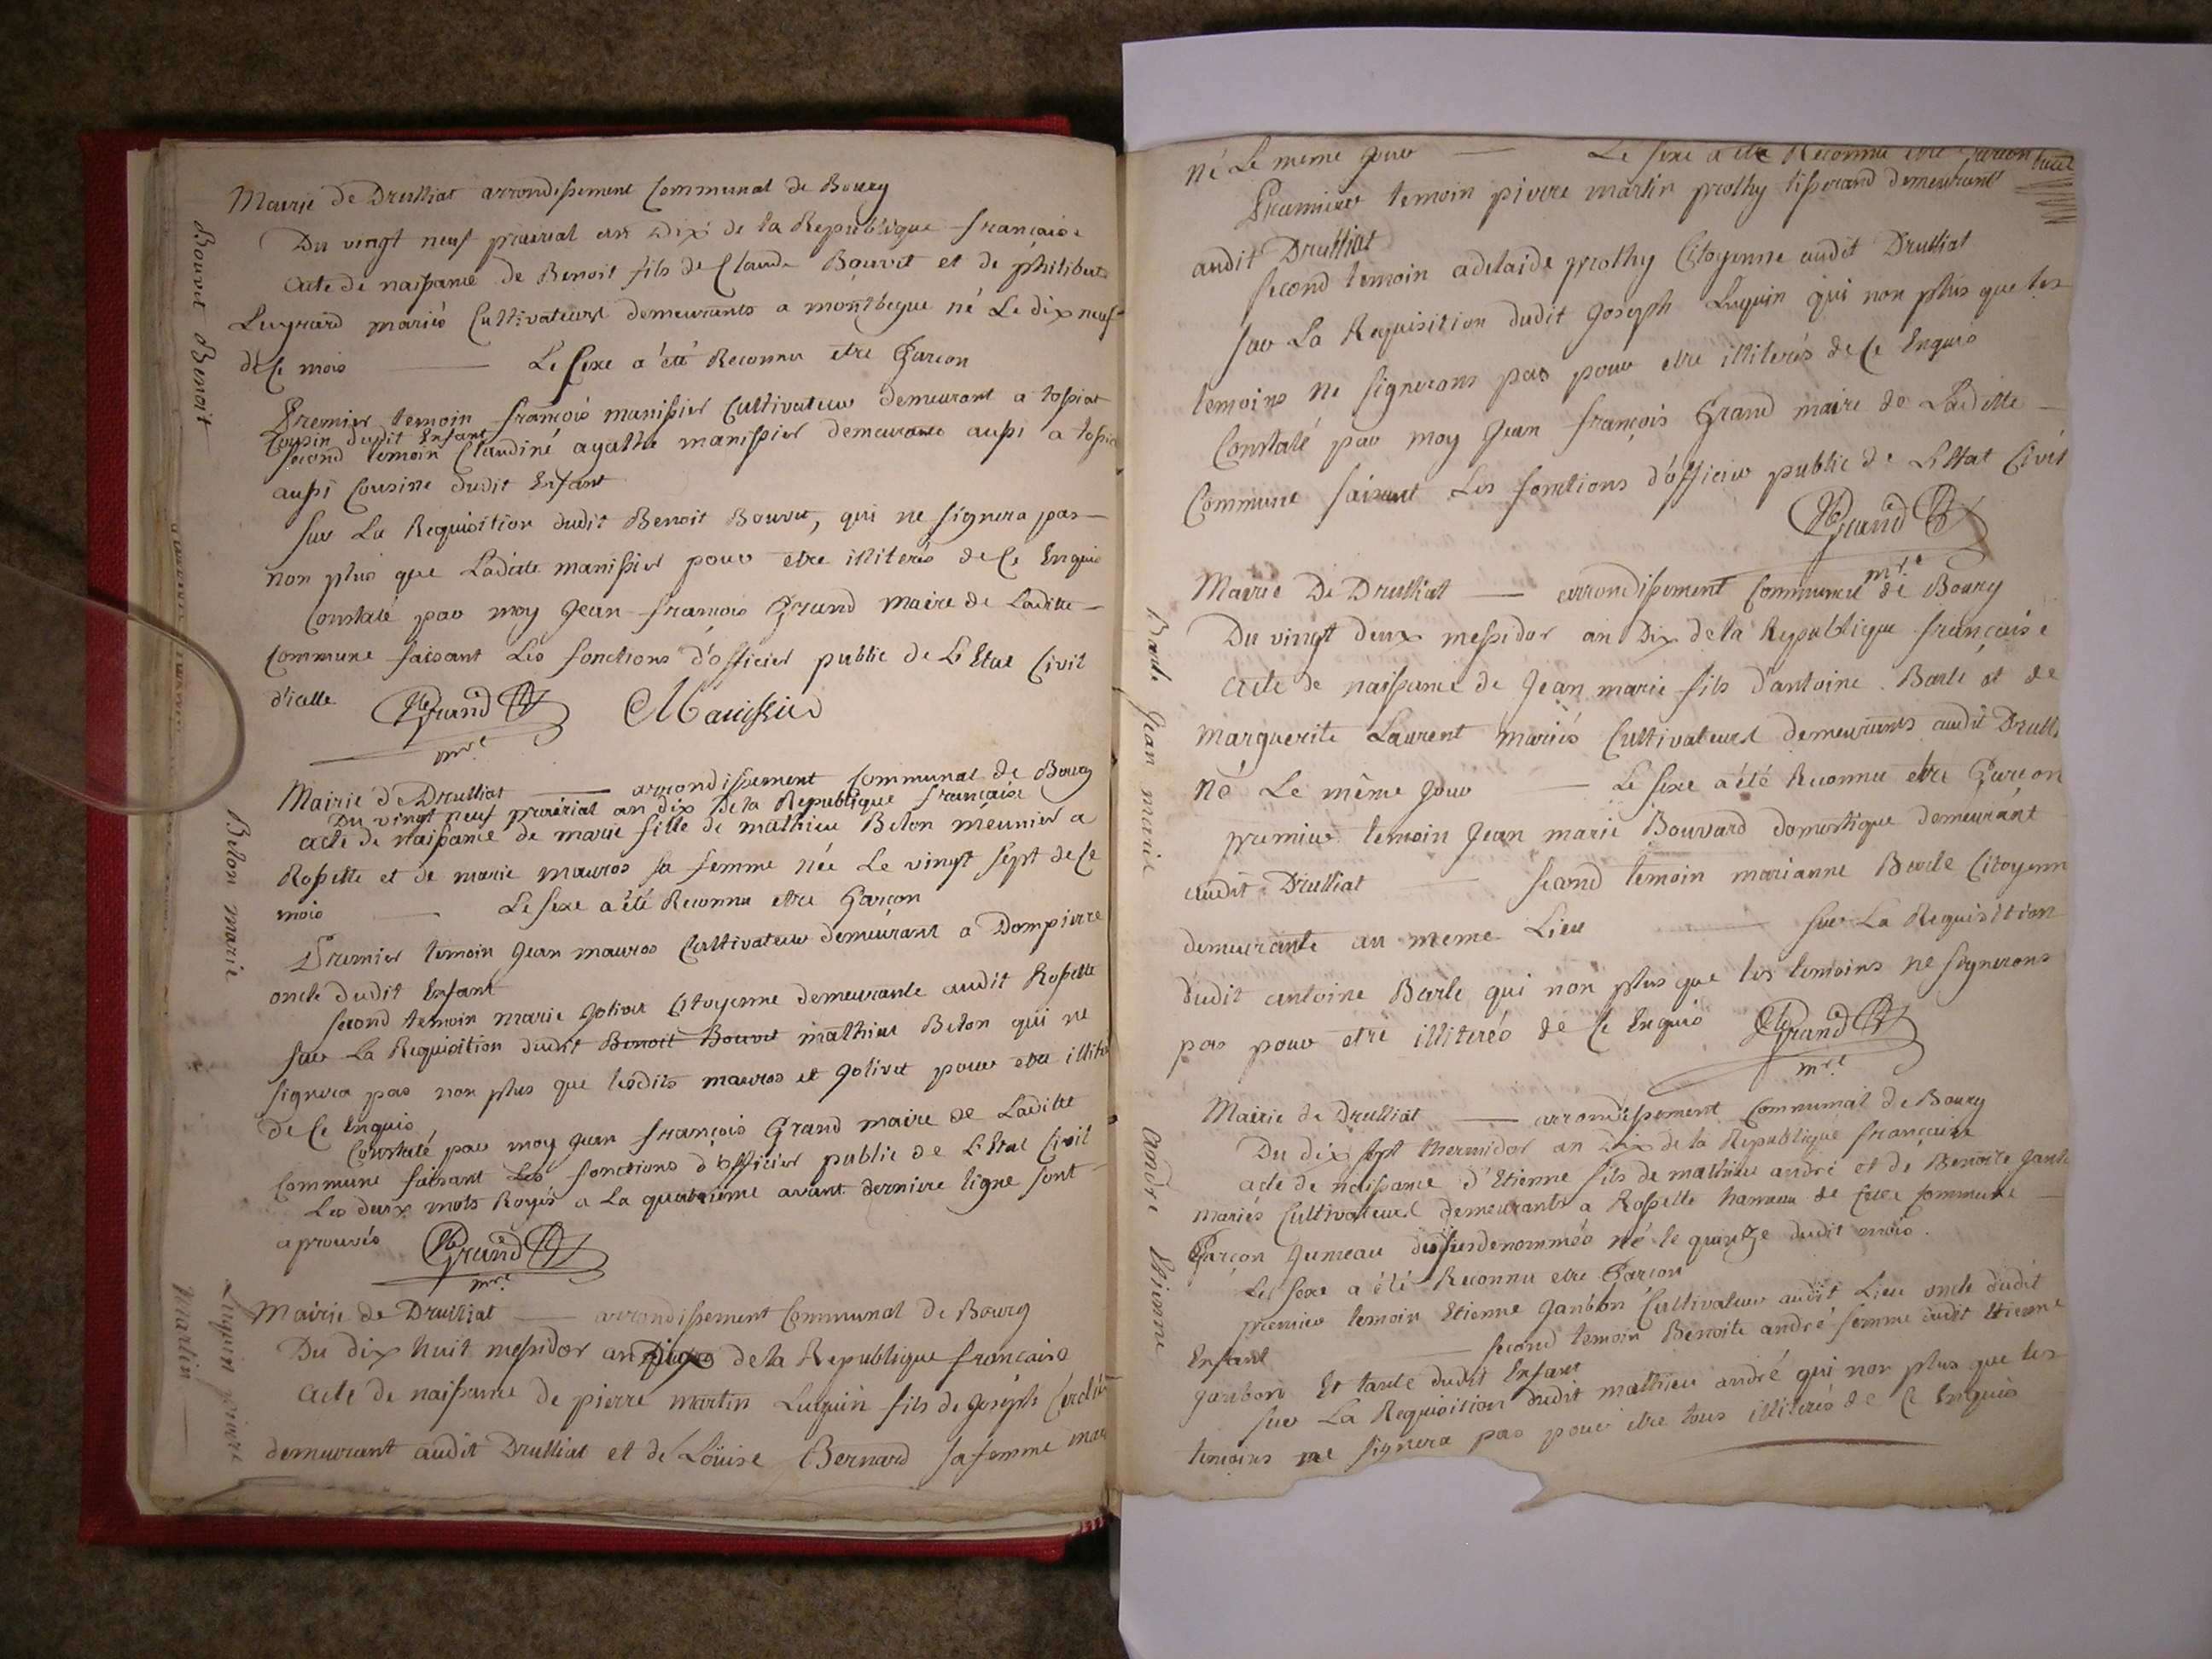 Bouvet Benoit
Mairie de Drulliat arrondissement Communal de Bourg
Du vingt neuf prairial an Dix de la Republique francaise
acte de naissance de Benoit fils de Claude Bouvet et de philiberte
Lugrard mariés Cultivateurs demeurants a montbegue né Le dix neuf
de Ce mois — Le sexe a été Reconnu etre Garcon
Premier temoin francois manissier Cultivateur demeurant a tossiat
Cousin dudit Enfant
second temoin Claudine agathe manissier demeurante aussi a tossia
aussi Cousine dudit Enfant
Sur La Requisition dudit Benoit Bouvet, qui ne signera pas —
non plus que Ladite manissier pour etre illiterés de Ce Enquis
Constaté par moy Jean francois Grand maire de Laditte —
Commune faisant Les fonctions d'officier public de L'Etat Civil
d'icelle Grand Manissier
mre
Belon marie
Mairie de Drulliat — arrondissement Communal de Bourg
Du vingt neuf prairial an dix de la Republique francaise
acte de naissance de marie fille de mathieu Belon meunier a
Rossette et de marie mauros sa femme née Le vingt sept de Ce
mois — Le sexe a été Reconnu etre Garcon
Premier temoin Jean mauros Cultivateur demeurant a Dompierre
oncle dudit Enfant
second temoin marie Jolivet Citoyenne demeurante audit Rossette
Sur La Requisition dudit Benoit Bouvet mathieu Belon qui ne
signera pas non plus que lesdits mauros et Jolivet pour etre illité
de Ce Enquis
Constaté par moy Jean francois Grand maire de Laditte
Commune faisant Les fonctions d'officier public de L'Etat Civil
Les deux mots Royés a La quatrieme avant derniere ligne sont
aprouvés Grand
mre
Luquin pierre
Martin
Mairie de Drulliat — arrondissement Communal de Bourg
Du dix huit messidor an Dix de la Republique francaise
acte de naissance de pierre martin Luquin fils de Joseph
demeurant audit Drulliat et de Loüise Bernard sa femme
né Le meme Jour — Le sexe a eté Reconnu etre Garcon
Premier temoin pierre martin prothy tisserand demeurant
audit Drulliat
second temoin adelaide prothy Citoyenne audit Drulliat
sur La Requisition dudit Joseph Luquin qui non plus que les
temoins ne signerons pas pour etre illiterés de Ce Enquis
Constaté par moy Jean françois Grand maire de Laditte —
Commune faisant Les fonctions d'officier public de L'Etat Civil
Grand
mre
Barle Jean marie
Mairie De Drulliat — arrondissement Communal de Bourg
Du vingt deux messidor an Dix de la Republique française
acte de naissance de Jean marie fils d'antoine Barle et de
marguerite Laurent mariés Cultivateurs demeurants audit Drulli
Né Le même Jour — Le sexe a été Reconnu etre Garcon
premier temoin Jean marie Bouvard domestique demeurant
audit Drulliat — second temoin marianne Barle Citoyenn
demeurante au meme Lieu — sur La Requisition
dudit antoine Barle qui non plus que les temoins ne signerons
pas pour etre illiterés de Ce Enquis Grand
mre
André Etienne
Mairie de Drulliat — arrondissement Communal de Bourg
Du dix sept thermidor an Dix de la Republique francaise
acte de naissance d'Etienne fils de mathieu andré et de Benoite
mariés Cultivateurs demeurants a Rossette hameau de Commune —
Garcon Jumeau né le quinze dudit mois.
Le sexe a été Reconnu etre Garcon
premier temoin Etienne Janbon Cultivateur audit Lieu oncle dudit
Enfant — second temoin Benoite andré femme dudit Etienne
Janbon Et tante dudit Enfant
sur La Requisition dudit mathieu andré qui non plus que les
temoins ne signera pas pour etre tous illiterés de Ce Enquis